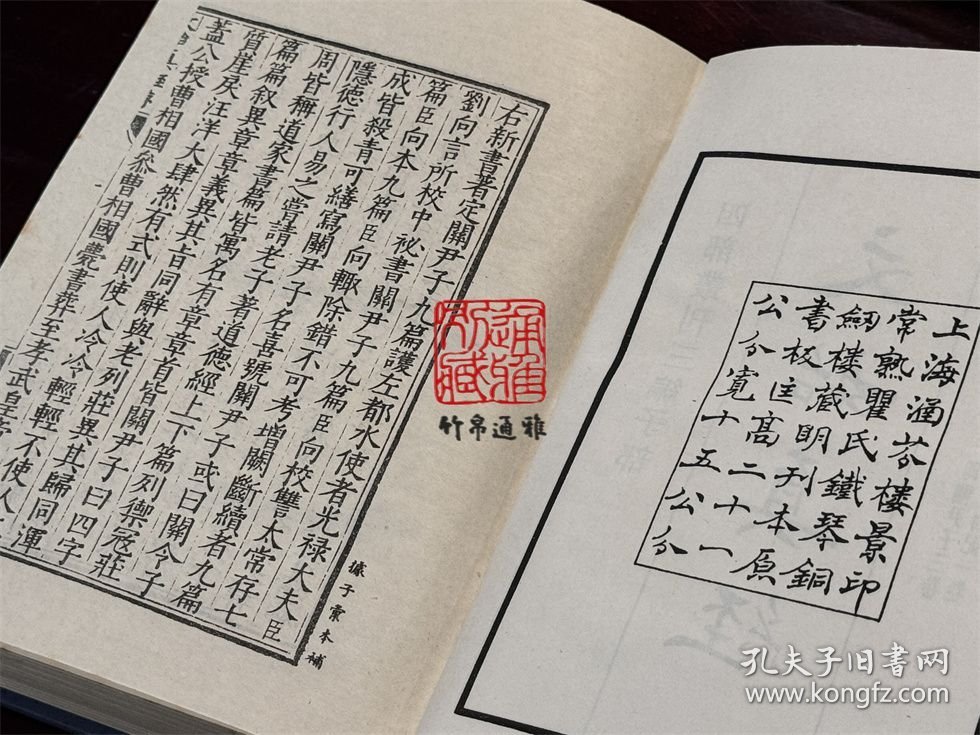 上海涵芬樓景印
常熟瞿氏鐵琴銅
劒樓藏明刊本原
書板匡高二十一
公分寬十五公分
右新書著定關尹子九篇護左都水使者光祿大夫臣
劉向言所校中祕書關尹子九篇臣向校讎太常存七
篇臣向本九篇臣向輙除錯不可考增闕斷續者九篇
成皆殺青可繕寫關尹子名喜號關尹子或曰關令子
隱德行人易之嘗請老子著道德經上下篇列禦冦莊
周皆稱道家書篇皆寓名有章章首皆關尹子曰四字
篇篇叙異章章義異其旨同辭與老列莊異其歸同渾
質崖戾汪洋大肆然有式則使人泠泠輕輕不使人
蓋公授曹相國參曹相國薨書葬至孝武皇帝
據子彙本補
通雅
竹帛通雅
孔夫子旧书网
www.kongfz.com